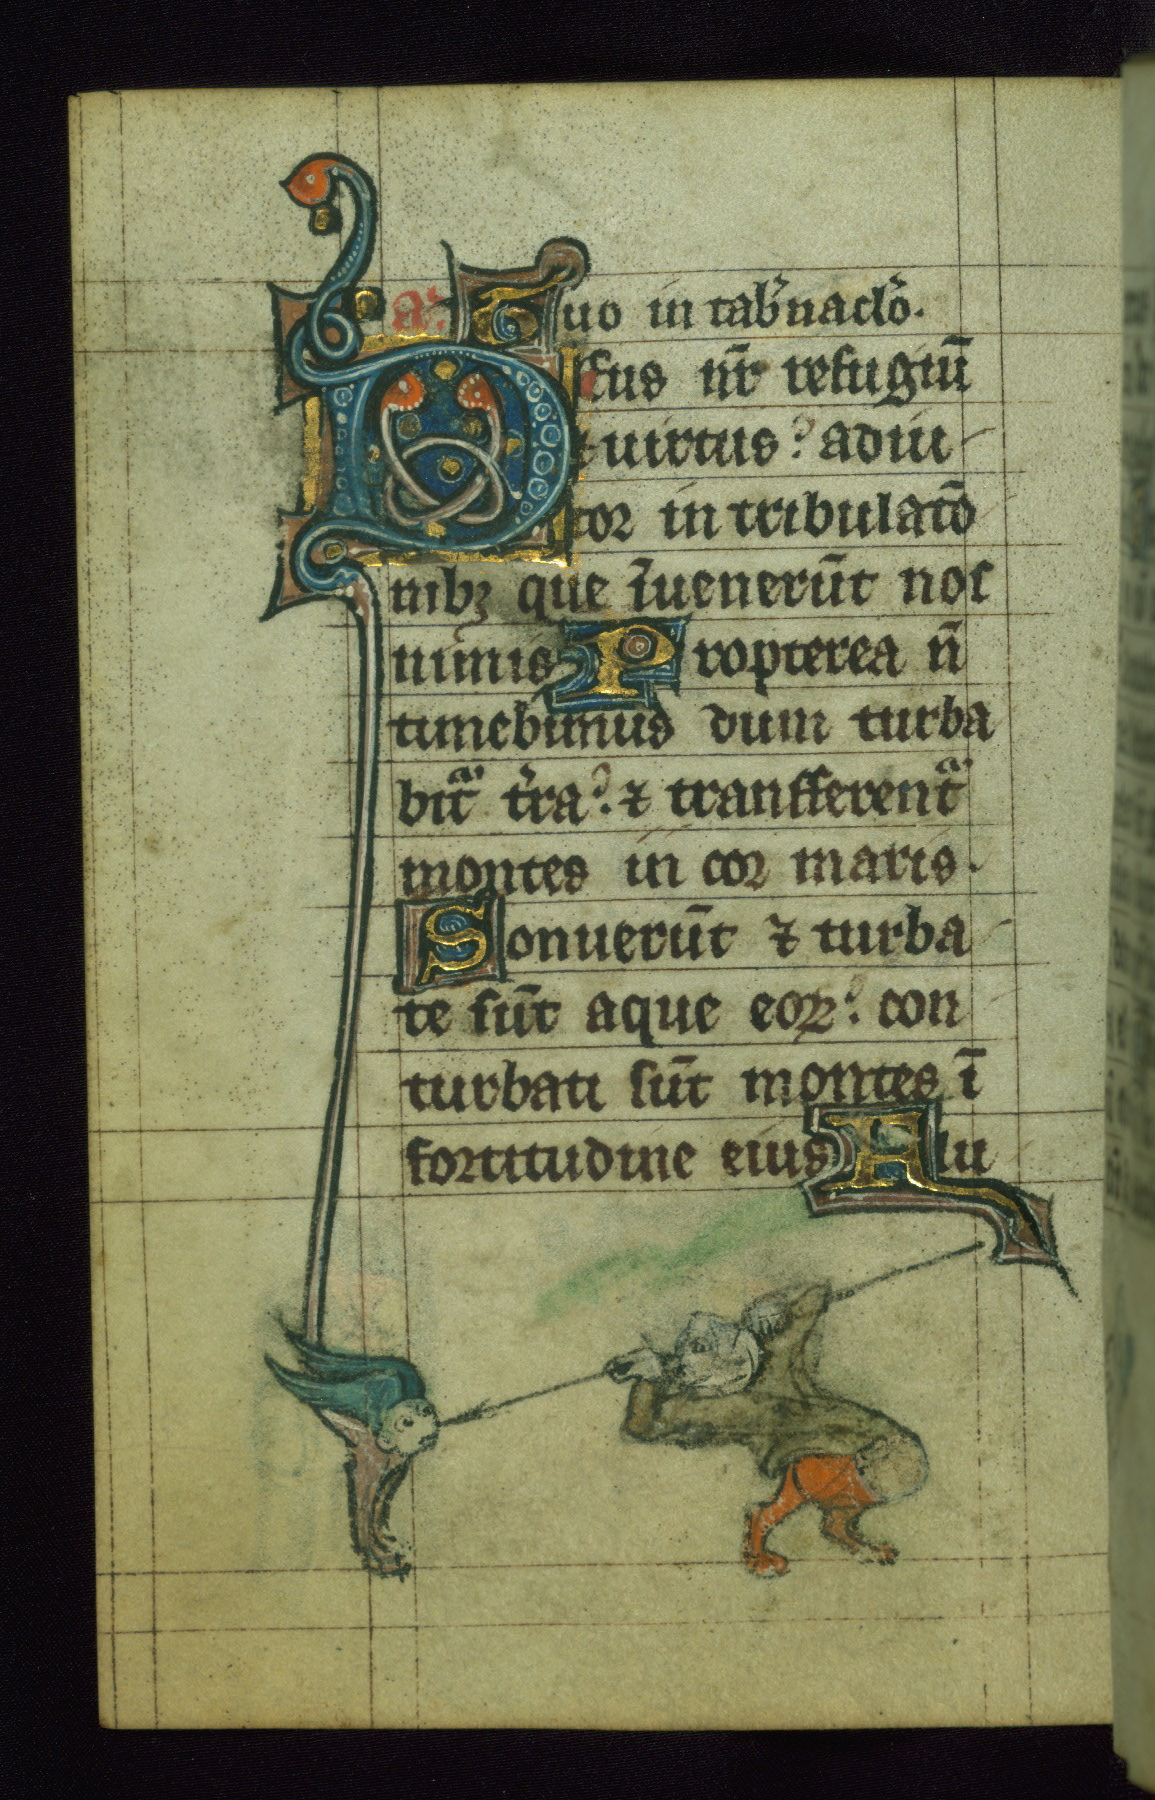 a᷒. Tuo in tab̾nacl̾o.
Deus nr̄ refugiū
et uirtus? adiu
tor in tribulatō
nibꝫ que īuenerūt nos
nimis Propterea n̄
timebimus dum turba
bitᷓ t̾ra?. ⁊ transferentᷓ
montes in cor maris.
Sonuerūt ⁊ turba
te sūt aque eoꝝ? con
turbati sūt montes ī
fortitudine eius Flu